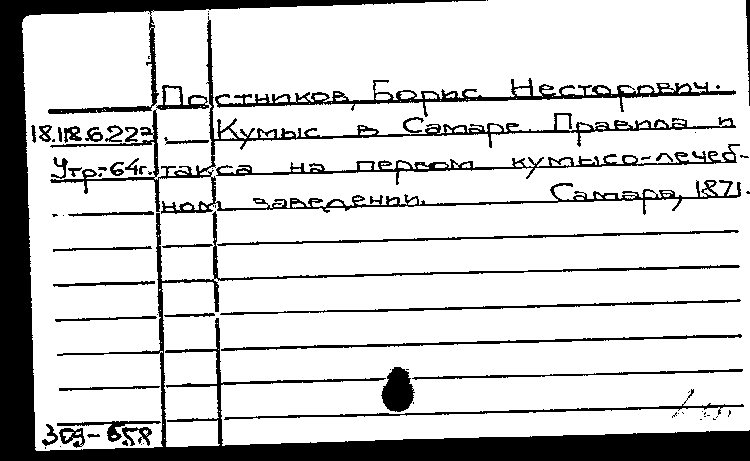 Постников, Борис Несторович.
18.118.6.222. Кумыс в Самаре. Правила и
Утр.-64г. такса на первом кумысо-лечеб-
ном заведении. Самара, 1871.
369-658